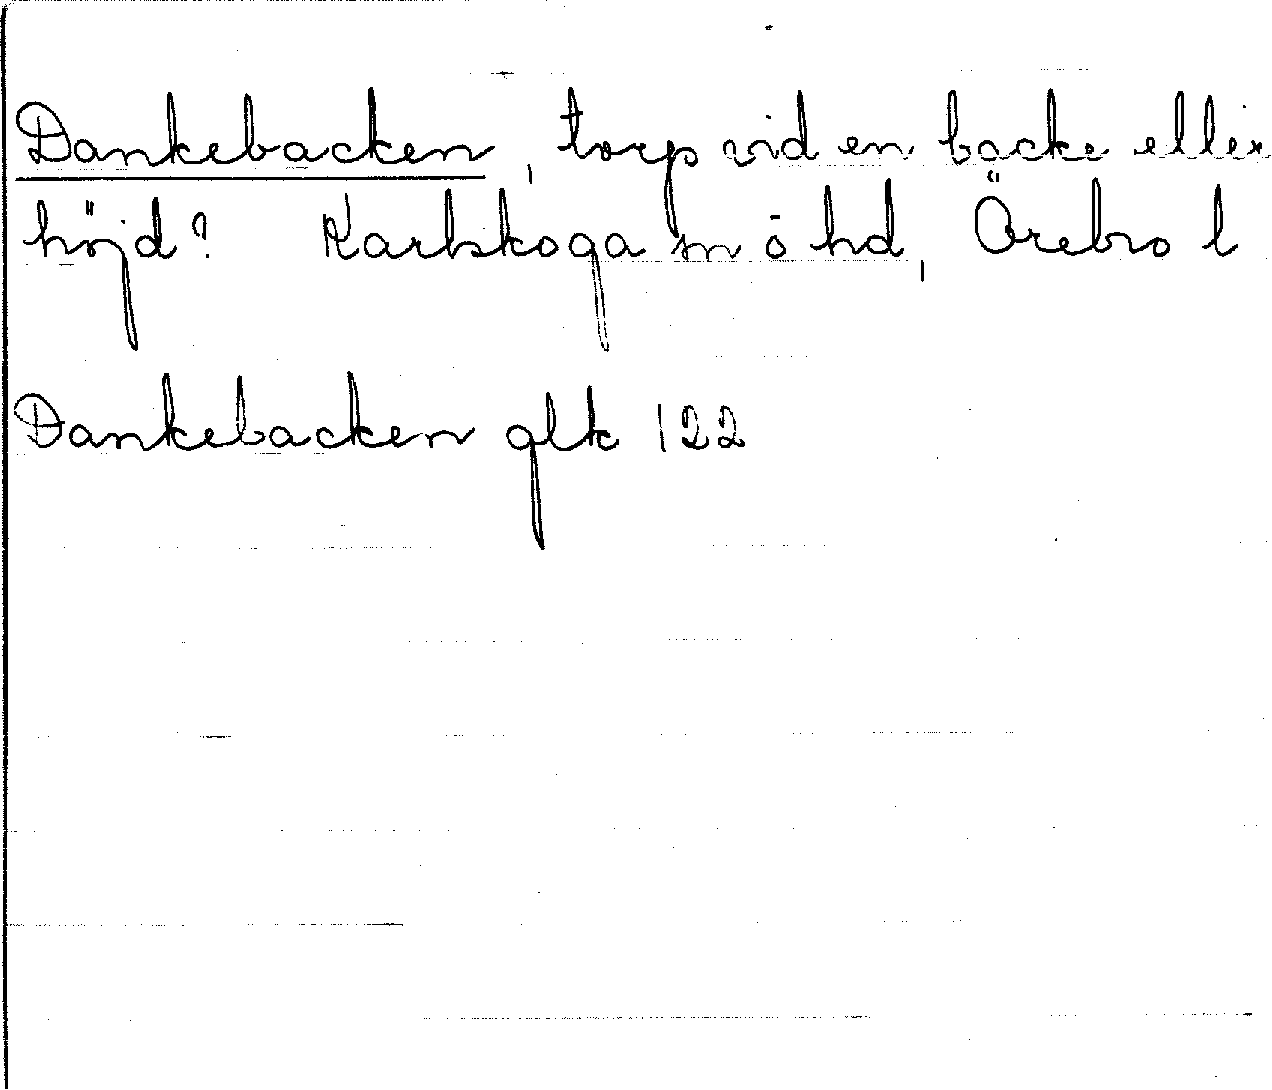 Dankebacken, torp vid en backe eller
höjd? Karlskoga sn o hd, Örebro l
Dankebacken glk 122